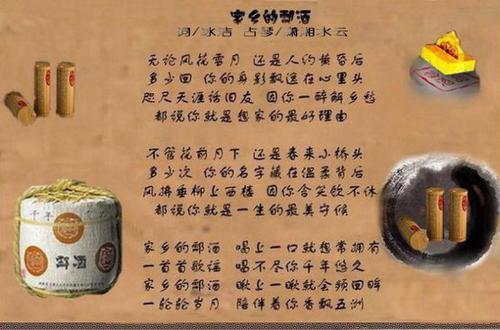 家乡的酃酒
词/冰洁 古琴/潇湘水云
无论风花雪月 还是人约黄昏后
多少回 你的身影飘逗在心里头
咫尺天涯话旧友 因你一醉解乡愁
都说你就是想家的最好理由
不管花前月下 还是春来小桥头
多少次 你的名字藏在温柔背后
风摆垂柳上西楼 因你含笑饮不休
都说你就是一生的最美守候
家乡的酃酒 喝上一口就想常拥有
一首首歌谣 唱不尽你千年悠久
家乡的酃酒 瞅上一眼就会频回眸
一轮轮岁月 陪伴着你香飘五洲
酃酒